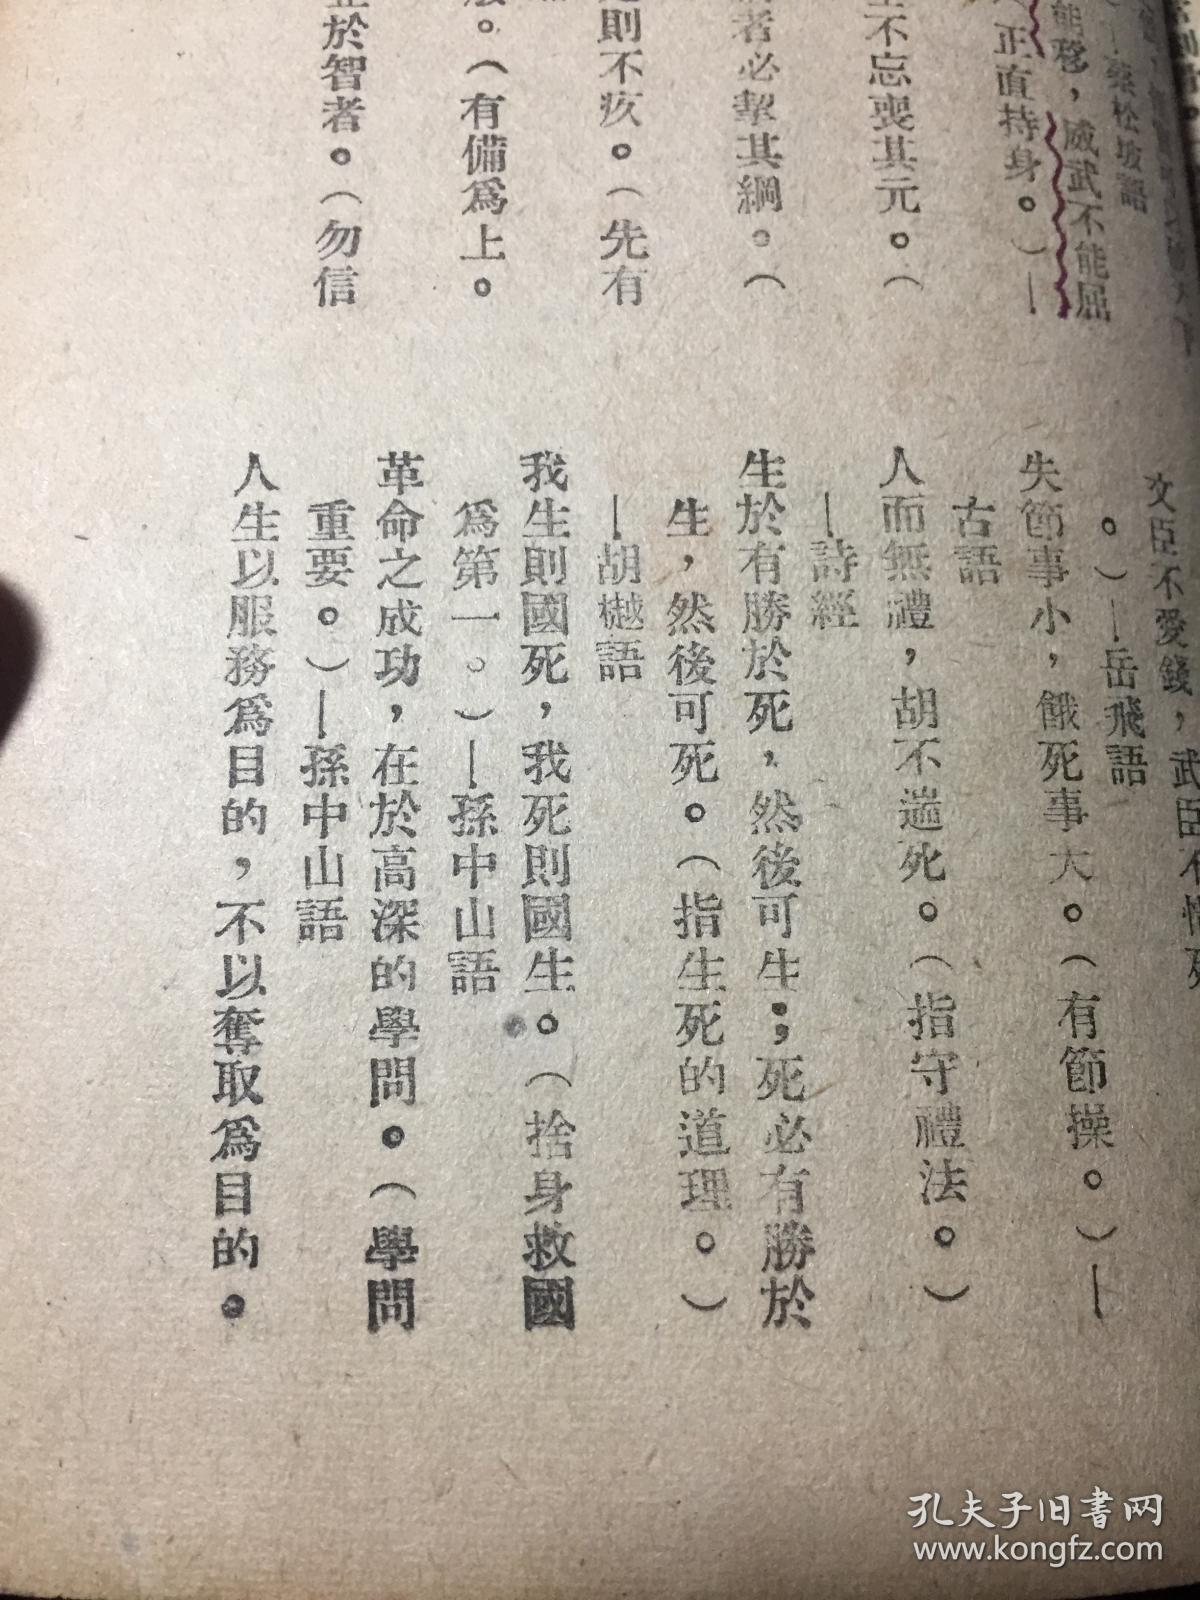 蔡松坡語
能移，威武不能屈
正直持身。）—
不忘喪其元。（
者必挈其綱。（
則不疚。（先有
。（有備爲上。
於智者。（勿信
文臣不愛錢，武臣不惜死
。）—岳飛語
失節事小，餓死事大。（有節操。）—
古語
人而無禮，胡不遄死。（指守禮法。）
—詩經
生於有勝於死，然後可生；死必有勝於
生，然後可死。（指生死的道理。）
—胡樾語
我生則國死，我死則國生。（捨身救國
爲第一。）—孫中山語
革命之成功，在於高深的學問。（學問
重要。）—孫中山語
人生以服務爲目的，不以奪取爲目的。
孔夫子旧书网
www.kongfz.com